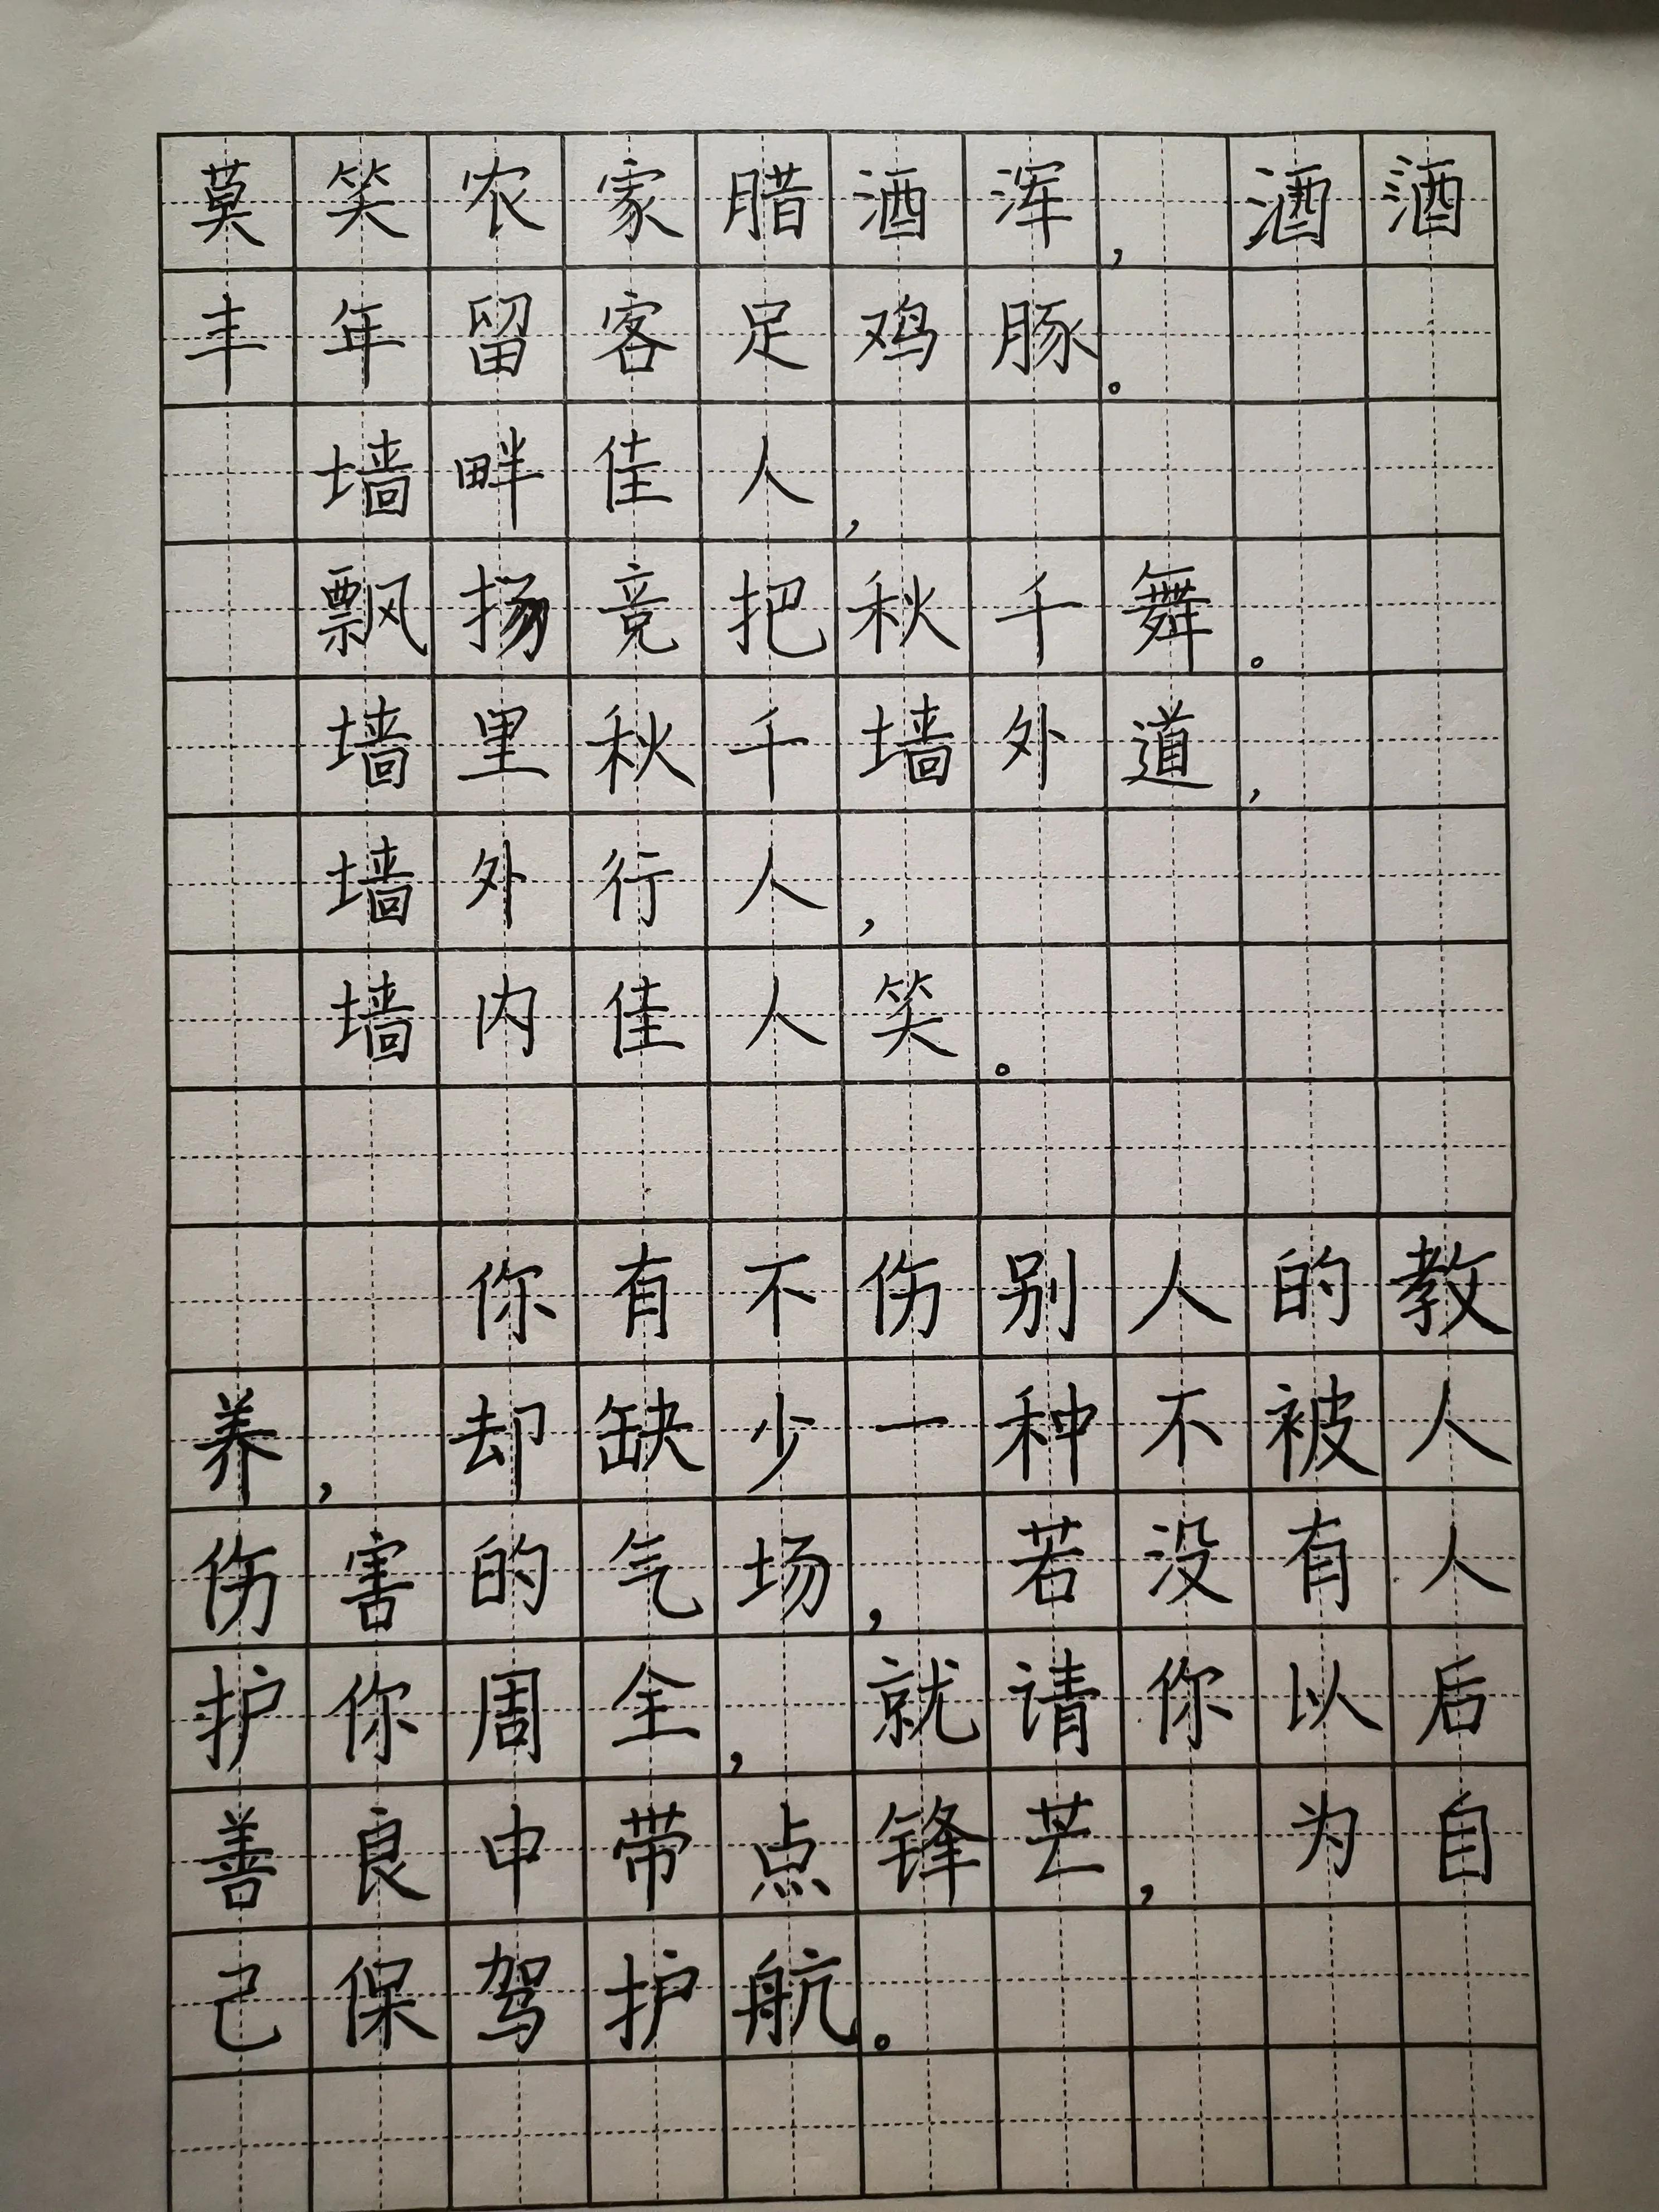 莫笑农家腊酒浑，酒酒
丰年留客足鸡豚。
墙畔佳人，
飘扬竞把秋千舞。
墙里秋千墙外道，
墙外行人，
墙内佳人笑。
你有不伤别人的教
养，却缺少一种不被人
伤害的气场，若没有人
护你周全，就请你以后
善良中带点锋芒，为自
己保驾护航。